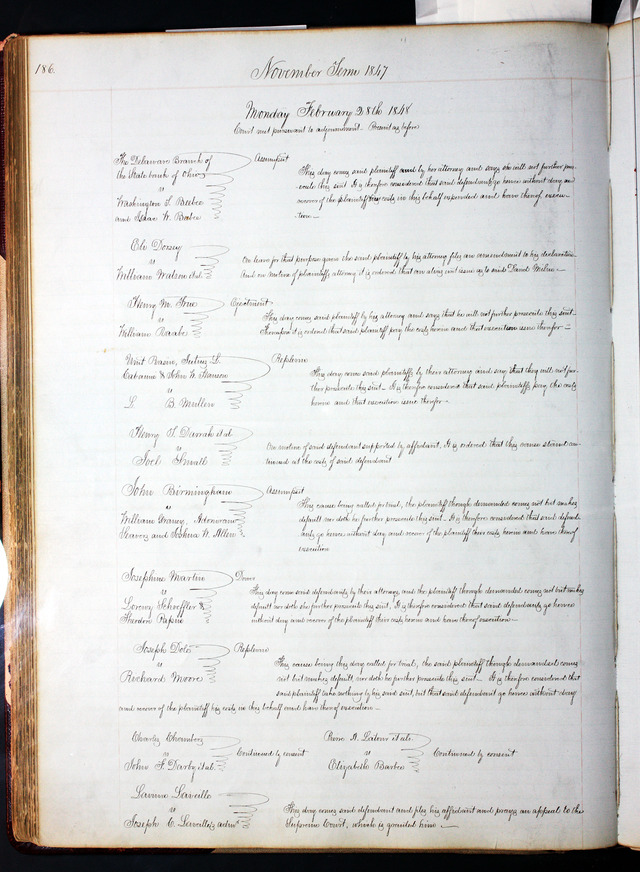 186.
November Term 1847
Monday February 28th 1848
Court met pursuant to adjournment – Present as before
The Delaware Branch of
the State bank of Ohio
vs
Washington S. Bartee
and Isaac W. Bartee
Assumpsit
This day comes said plaintiff by her attorney and says she will not further pros-
ecute this suit. It is therefore considered that said defendants go hence without day and
recover of the plaintiff their costs in this behalf expended and have thereof execu-
tion –
Eli Dorsey
vs
William Watson et al.
On leave for that purpose given the said plaintiff by his attorney files an amendment to his declaration
And on motion of plaintiffs attorney it is ordered that an alias writ issue as to said David Milne –
Henry M. True
vs
William Raabe
Ejectment
This day comes said plaintiff by his attorney and says that he will not further prosecute this suit
Therefore it is ordered that said plaintiff pay the costs herein and that execution issue therefor –
Cabanne & John W.
vs
L. B. Mullen
Replevin
This day come said plaintiffs by their attorney and say that they will not fur-
ther prosecute this suit – It is therefore considered that said plaintiffs pay the costs
herein and that execution issue therefor –
Henry S. Darrah et al.
vs
Joel Small
On motion of said defendant supported by affidavit, It is ordered that this cause stand con-
tinued at the costs of said defendant
John Birmingham
vs
William Graney, Adonoram
and Joshua W. Allen
Assumpsit
This cause being called for trial, the plaintiff though demanded comes not but makes
default nor doth he further prosecute this suit – It is therefore considered that said defend-
ants go hence without day and recover of the plaintiff their costs herein and have thereof
execution
Josephine Martin
vs
Lorenz Schoeffler and
Theodore
Dower
This day come said defendants by their attorney, and the plaintiff though demanded comes not but makes
default nor doth she further prosecute this suit, It is therefore considered that said defendants go hence
without day and recover of the plaintiff their costs herein and have thereof execution –
Joseph
vs
Richard Moore
Replevin
This cause being this day called for trial, the said plaintiff though demanded comes
not but makes default, nor doth he further prosecute this suit – It is therefore considered that
said plaintiff take nothing by his said suit, but that said defendant go hence without day
and recover of the plaintiff his costs in this behalf and have thereof execution –
Charles Chambers
vs
John F. Darby et al.
Continued by consent
A. Latour et als.
vs
Elizabeth Barbee
Continued by consent
vs
Joseph C. adm
This day comes said defendant and files his affidavit and prays an appeal to the
Supreme Court, which is granted him –